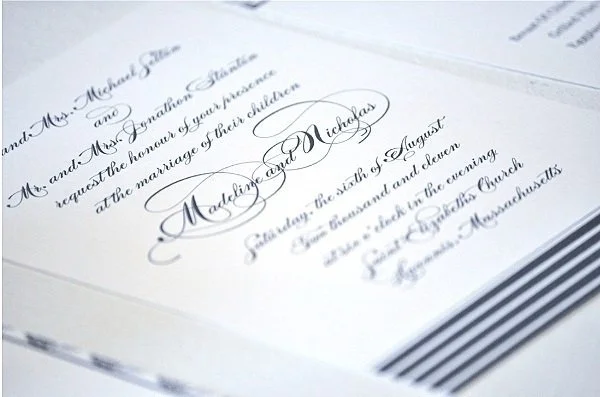 and Mrs. Michael
and
Mr. and Mrs. Jonathon Stanton
request the honour of your presence
at the marriage of their children
Madeline and Nicholas
Saturday, the sixth of August
Two thousand and eleven
at six o'clock in the evening
Saint Elizabeths Church
Hyannis, Massachusetts